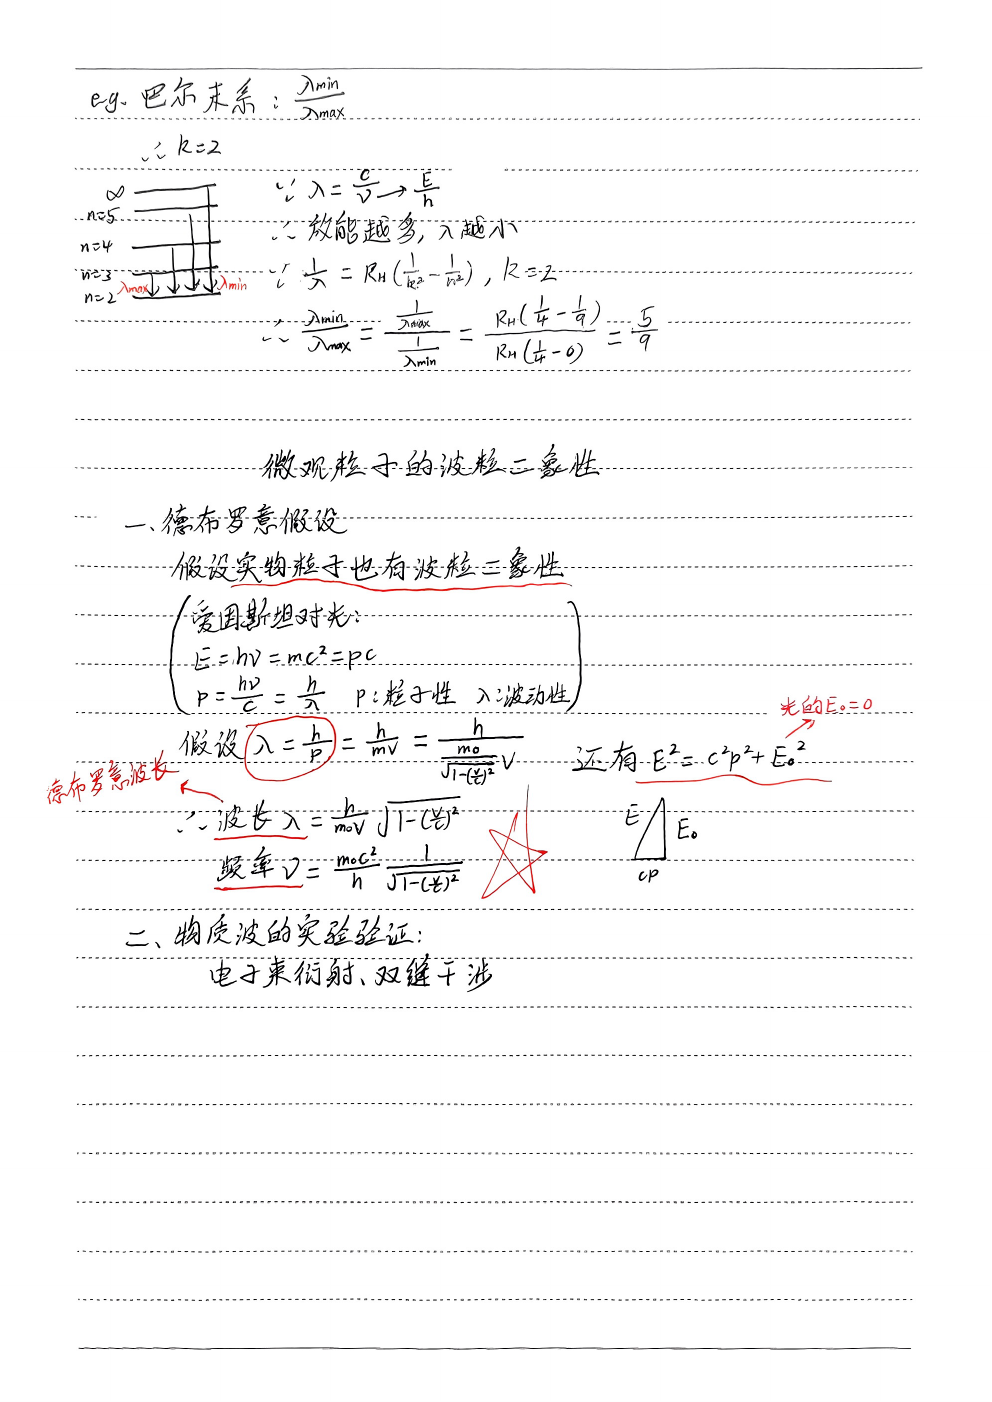 e.g. 巴尔末系: λmin/λmax
∴ k=2
∞
n=5
n=4
n=3
n=2
λmax
λmin
∵ λ = c/ν → E/h
∴ 放能越多, λ越小
∵ 1/λ = R_H(1/k² - 1/n²), k=2
∴ λmin/λmax = (1/λmax)/(1/λmin) = R_H(1/4 - 1/9)/R_H(1/4 - 0) = 5/9
微观粒子的波粒二象性
一、德布罗意假设
假设实物粒子也有波粒二象性
(爱因斯坦对光:
E = hν = mc² = pc
P = hν/c = h/λ P:粒子性 λ:波动性)
光的E₀=0
假设 λ = h/p = h/mv = h/(m₀/√(1-(v/c)²) v) 还有 E² = c²p² + E₀²
德布罗意波长
∴ 波长 λ = h/m₀v √(1-(v/c)²)
E E₀
cp
频率 ν = m₀c²/h 1/√(1-(v/c)²)
二、物质波的实验验证:
电子束衍射、双缝干涉